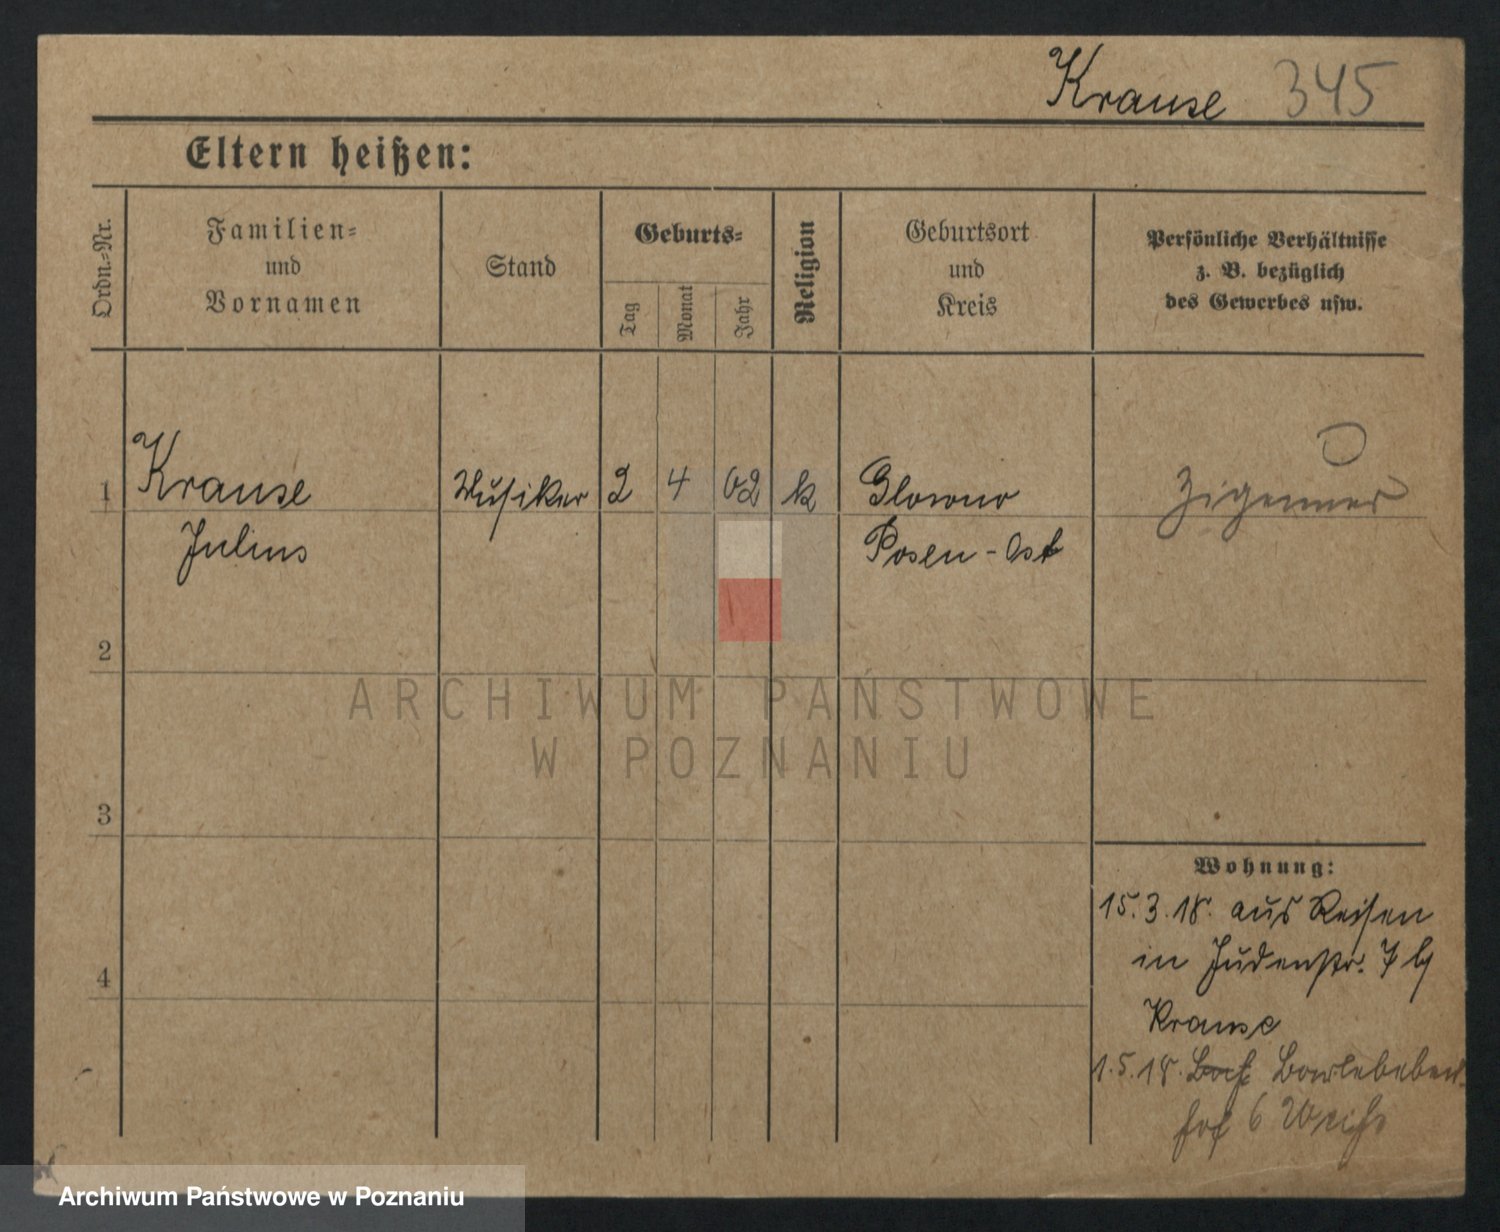 Krause 345
Eltern heißen:
Ordn.-Nr.
Familien-
und
Vornamen
Stand
Geburts-
Tag
Monat
Jahr
Religion
Geburtsort
und
Kreis
Persönliche Verhältnisse
z. B. bezüglich
des Gewerbes usw.
1 Krause Musiker 2 4 02 k Glowno Zigeuner
Julius Posen-Ost
2
3
4
Wohnung:
15.3.18. aus Reisen
in Judenstr. 7 b/
Krause
1.5.18.
hof 6
ARCHIWUM PAŃSTWOWE
W POZNANIU
Archiwum Państwowe w Poznaniu